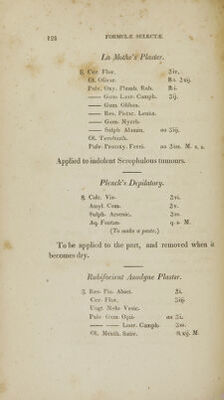 122 FORMULÆ SELECTÆ.
La Mothe's Plaster.
℞ Cer. Flav. ℥iv.
Ol. Olivar. ℔i. ℥vij.
Pulv. Oxy. Plumb. Rub. ℔i.
—— Gum. Laur. Camph. ℥ij.
—— Gum. Oliban.
—— Res. Pistac. Lentis.
—— Gum. Myrrh.
—— Sulph. Alumin. aa ℥iij.
Ol. Terebinth.
Pulv. Proxoxy. Ferri. aa M.
Applied to indolent Scrophulous tumours.
Plenck's Depilatory.
℞ Calc. Viv.
Amyl. Com. ℥v.
Sulph. Arsenic.
Aq. Fontan. q. s. M.
(To make a paste.)
To be applied to the part, and removed when it
becomes dry.
Rubifacient Anodyne Plaster.
℞ Res. Pin. Abiet. ℥i.
Cer. Flav.
Ungt. Melo Vesic.
Pulv. Gum. Opii. aa
—— —— Laur. Camph.
Ol. Menth. Sativ. M.